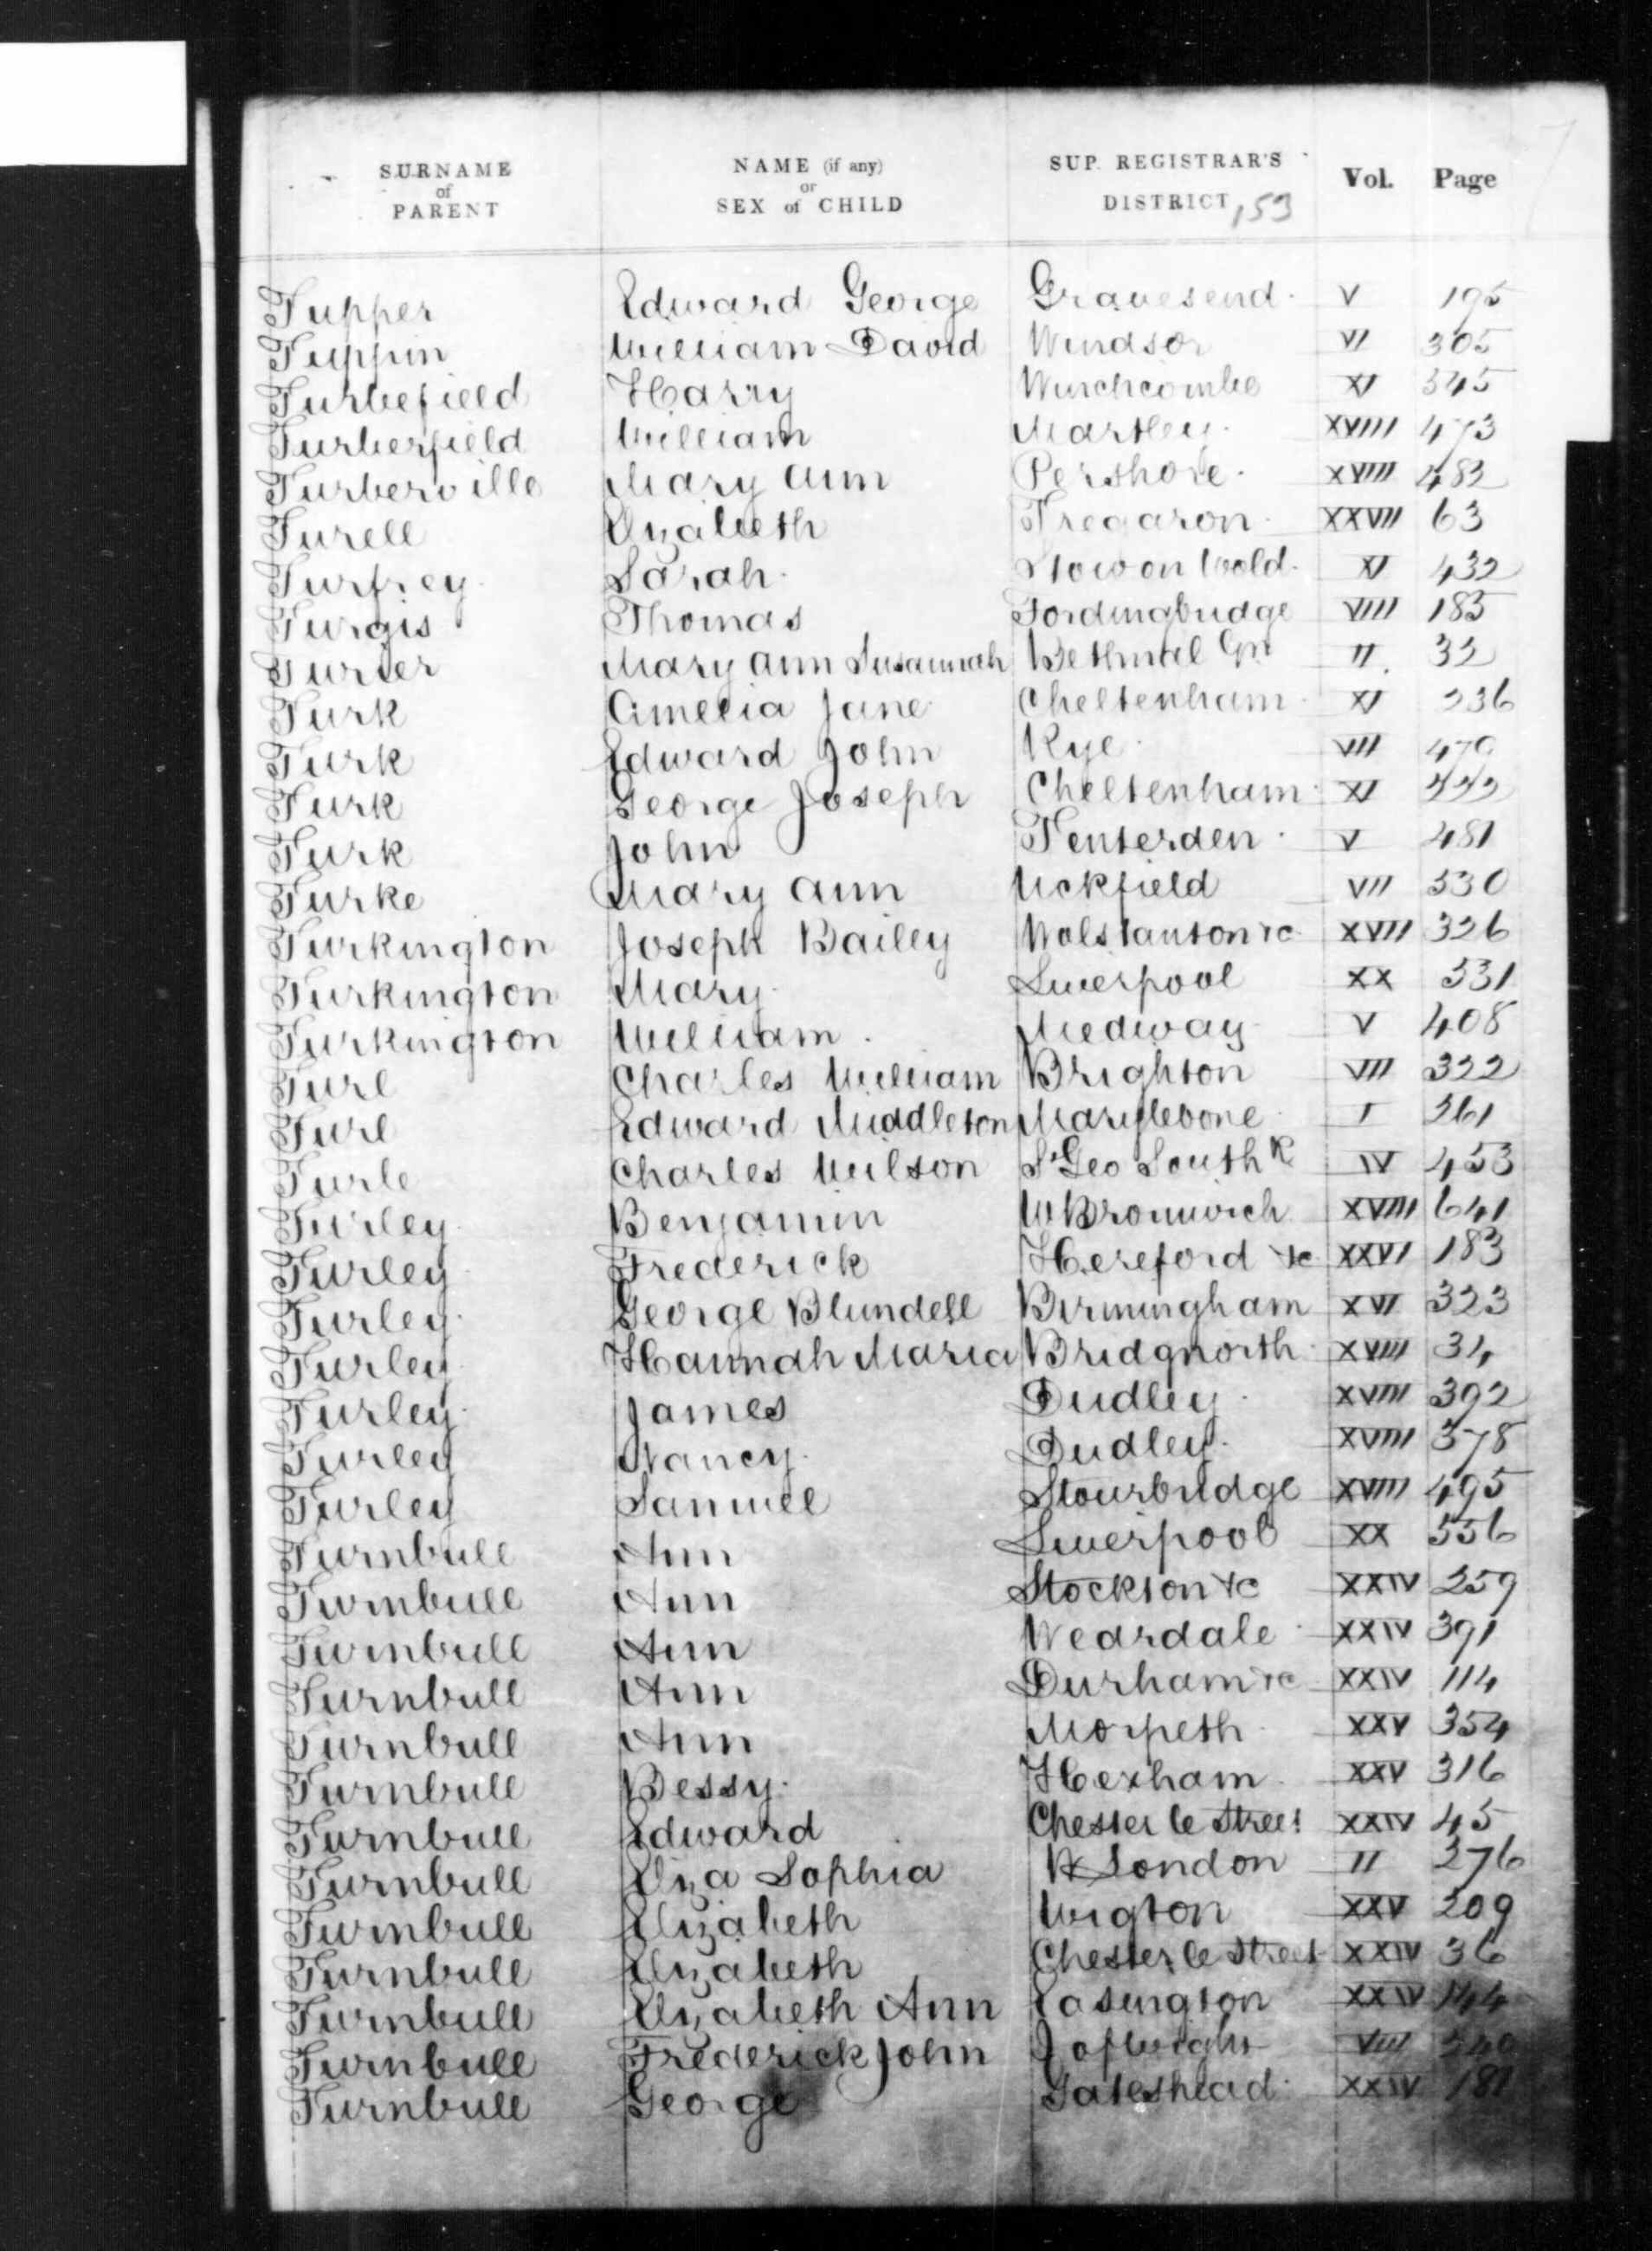 SURNAME of PARENT NAME (if any) or SEX of CHILD SUP. REGISTRAR'S DISTRICT 153 Vol. Page
Tupper Edward George Gravesend V 195
Tuppin William David Windsor VI 305
Turbefield Harry Winchcombe XI 545
Turberfield William Martley XVIII 473
Turberville Mary Ann Pershore XVIII 482
Turell Elizabeth Tregaron XXVII 63
Turfrey Sarah Stow on Wold XI 432
Turgis Thomas Fordingbridge VIII 185
Turier Mary Ann Susannah Bethnal Gn II 32
Turk Amelia Jane Cheltenham XI
Turk Edward John Rye VII 479
Turk George Joseph Cheltenham XI
Turk John Tenterden V 481
Turke Mary Ann Uckfield VII 530
Turkington Joseph Bailey Wolstanton &c XVII 326
Turkington Mary Liverpool XX 531
Turkington William Medway V 408
Turl Charles William Brighton VII 322
Turl Edward Middleton Marylebone I 361
Turle Charles Wilson St Geo Southk IV 453
Turley Benjamin W Bromwich XVIII 641
Turley Frederick Hereford &c XXVI 183
Turley George Blundell Birmingham XVI 323
Turley Hannah Maria Bridgnorth XVIII 34
Turley James Dudley XVIII 392
Turley Nancy Dudley XVIII 378
Turley Samuel Stourbridge XVIII 495
Turnbull Ann Liverpool XX 556
Turnbull Ann Stockton &c XXIV 259
Turnbull Ann Weardale XXIV 391
Turnbull Ann Durham &c XXIV 114
Turnbull Ann Morpeth XXV 354
Turnbull Bessy Hexham XXV 316
Turnbull Edward Chester le Street XXIV 45
Turnbull Eliza Sophia W London II 276
Turnbull Elizabeth Wigton XXV 209
Turnbull Elizabeth Chester le Street XXIV 36
Turnbull Elizabeth Ann Easington XXIV 144
Turnbull Frederick John I of Wight VIII 240
Turnbull George Gateshead XXIV 181